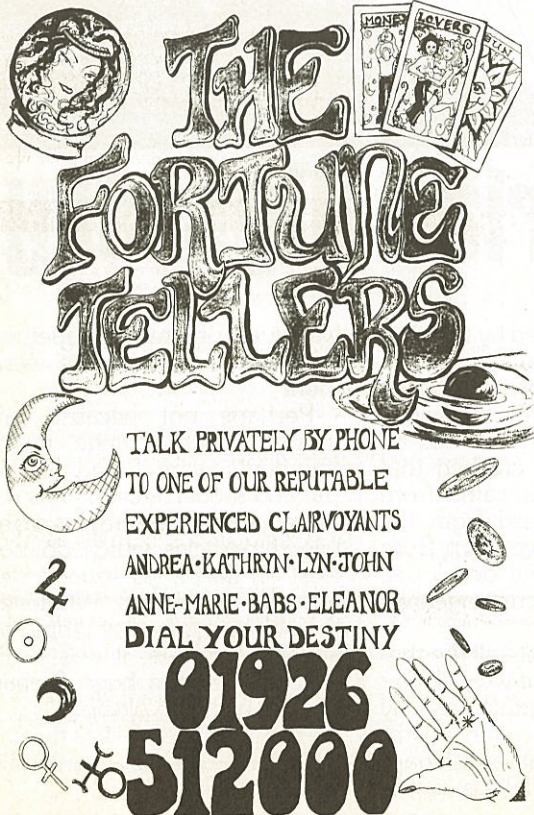 MONEY
LOVERS
THE
FORTUNE
TELLERS
TALK PRIVATELY BY PHONE
TO ONE OF OUR REPUTABLE
EXPERIENCED CLAIRVOYANTS
ANDREA·KATHRYN·LYN·JOHN
ANNE-MARIE·BABS·ELEANOR
DIAL YOUR DESTINY
01926
512000